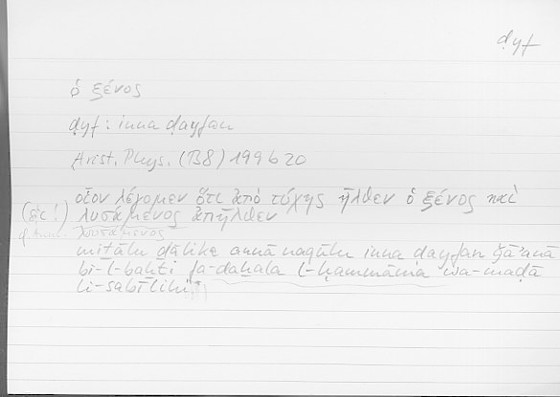 ḍyf
ὁ ξένος
ḍyf: inna ḍayfan
Arist. Phys. (B8) 199b20
οἷον λέγομεν ὅτι ἀπὸ τύχης ἦλθεν ὁ ξένος καὶ
(sic!) λυσάμενος ἀπῆλθεν
λουσάμενος
miṯālu ḏālika annā naqūlu inna ḍayfan ǧāʾanā
bi-l-baḫti fa-daḫala l-ḥammāma wa-maḍā
li-sabīlihi